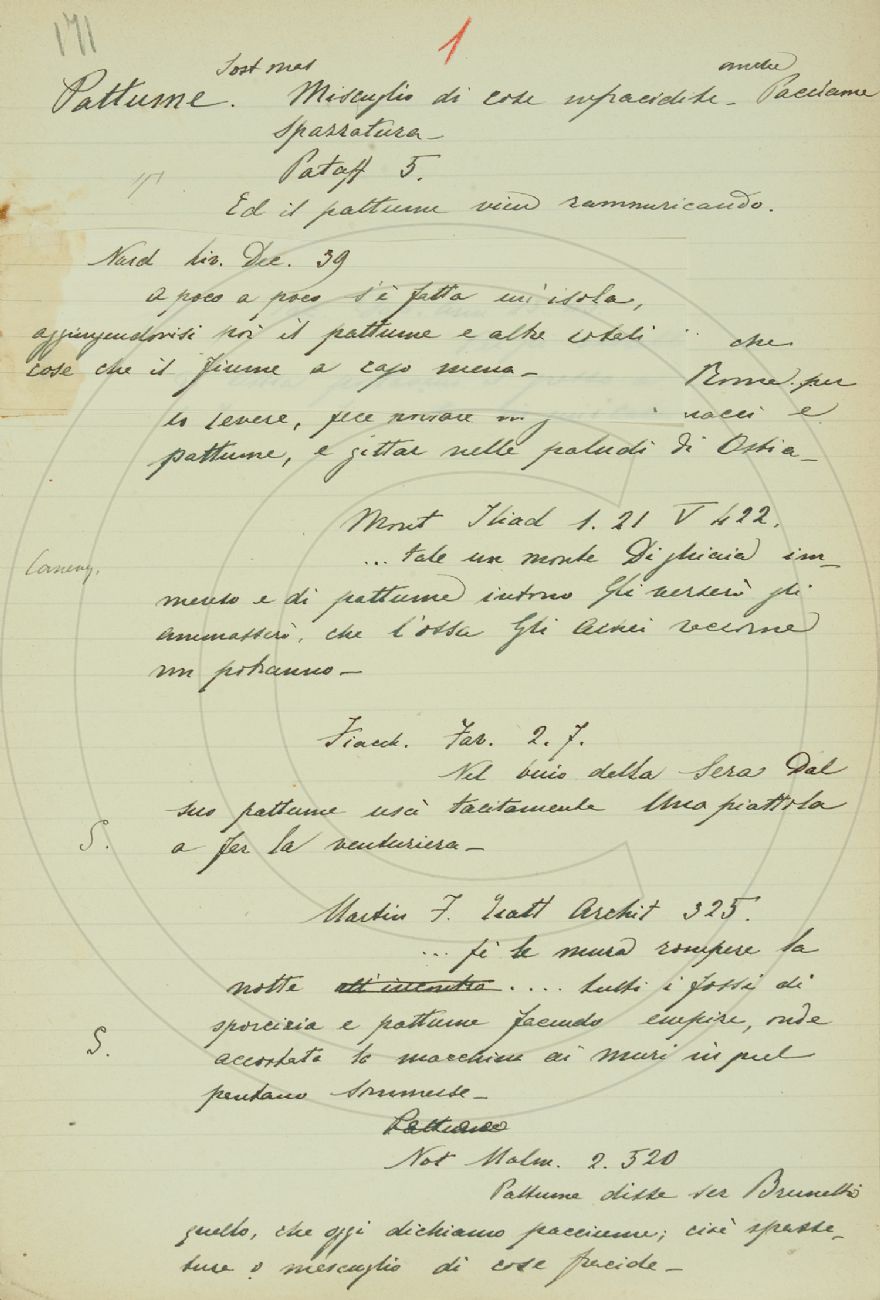 171
1
Sost mas
anche
Pattume. Miscuglio di cose infracidite - Pacciame
spazzatura -
Pataff 5.
Ed il pattume vien rammuricando.
Nard Liv. Dec. 39
a poco a poco s'è fatta un'isola,
aggiungendovisi poi il pattume e altre cotali
che
cose che il fiume a capo mena -
Rome. per
lo Tevere, fece
e
pattume, e gittar nelle paludi di Ostia -
Mont Iliad l. 21 V 422.
... tale un monte Di ghiaia im-
menso e di pattume intorno Gli verserò gli
ammasserò, che l'ossa Gli Achei raccorne
non potranno -
Fiacch. Fav. 2. 7.
Nel buio della Sera Dal
suo pattume uscì tacitamente Una piattola
S.
a far la venturiera -
Martin F. Tratt Archit 325.
... fè le mura rompere la
notte all'incontro .... tutti i fossi di
sporcizia e pattume facendo empire, onde
S.
accostata la macchina ai muri in quel
pantano sommerse -
Pattume
Not Malm. 2. 520
Pattume disse ser Brunetto
quello, che oggi dichiamo pacciume; cioè spazza-
tura o mescuglio di cose fracide -